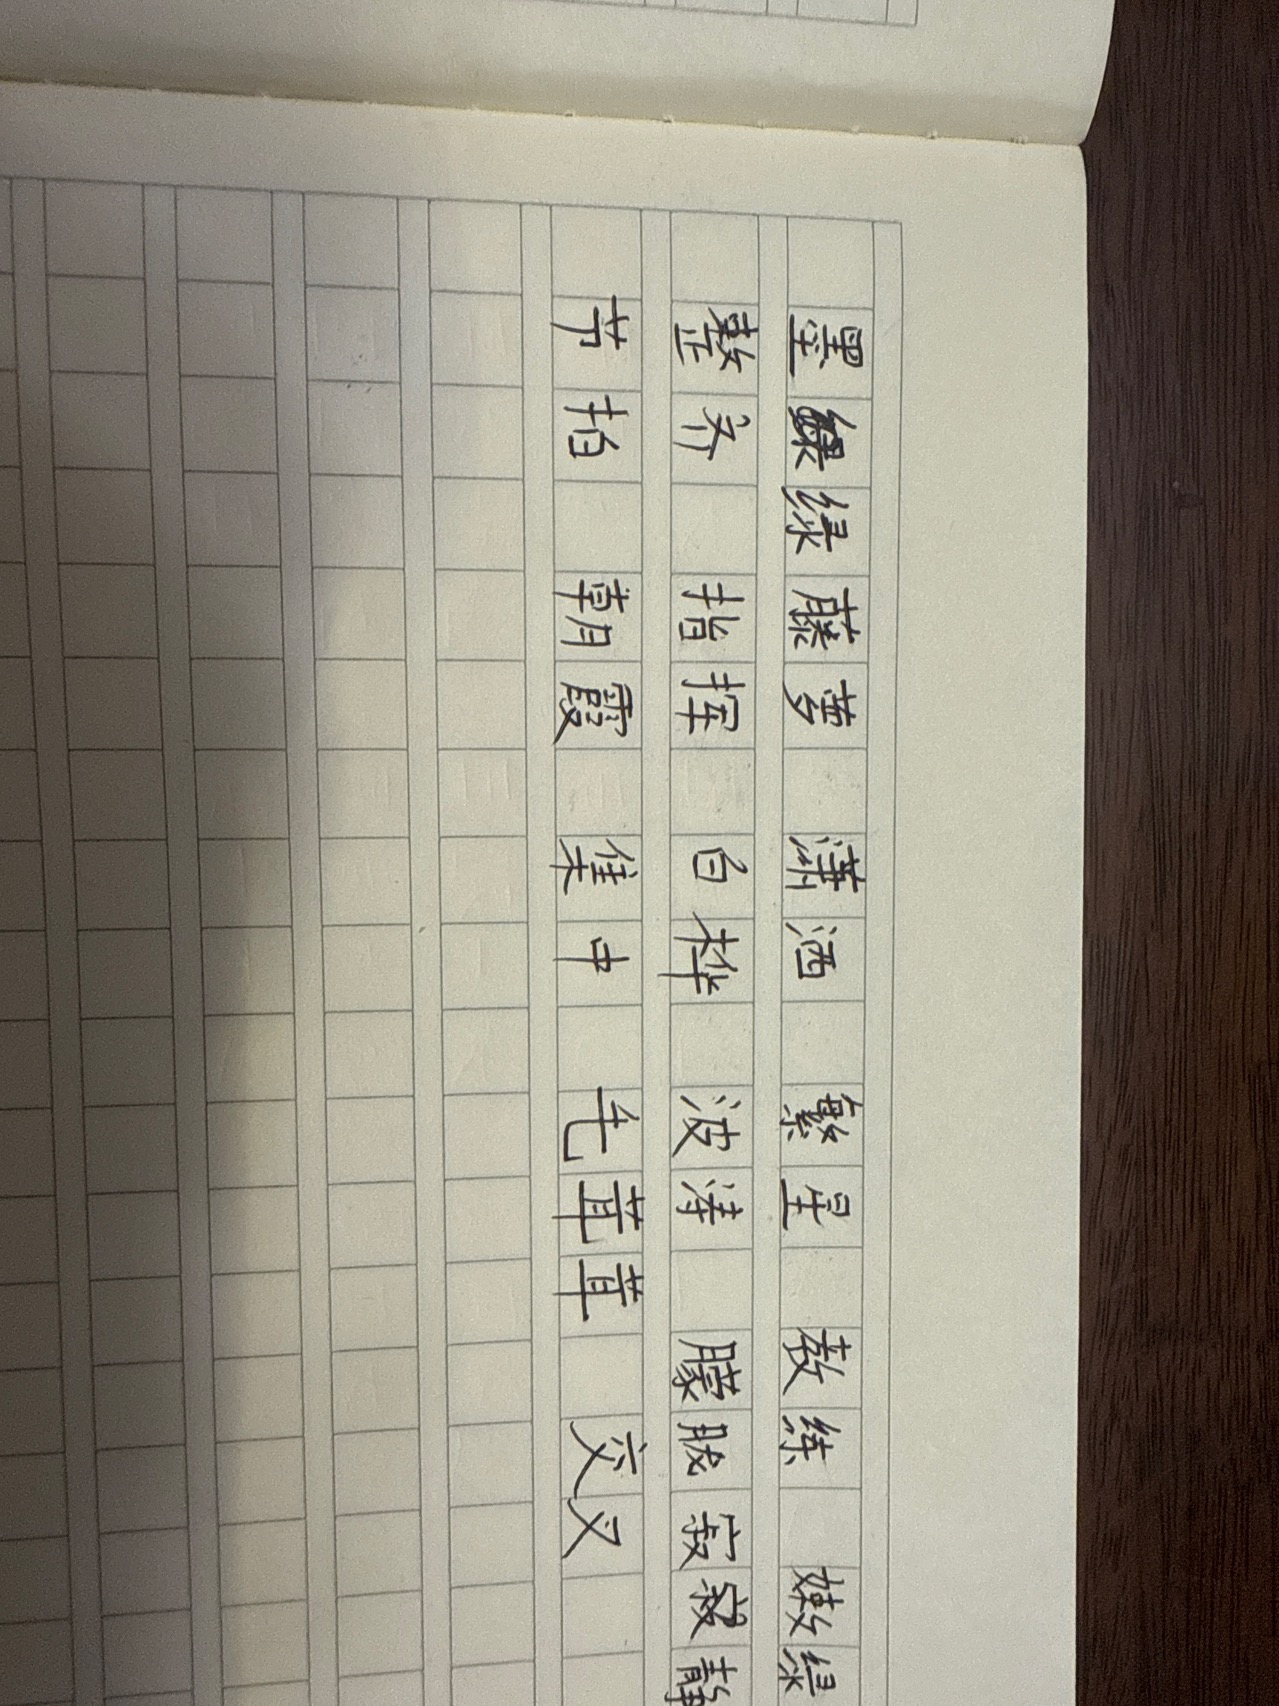 墨绿 藤萝 潇洒 繁星 教练 嫩绿
整齐 指挥 白桦 波涛 朦胧寂寂静
节拍 朝霞 集中 毛茸茸 交叉